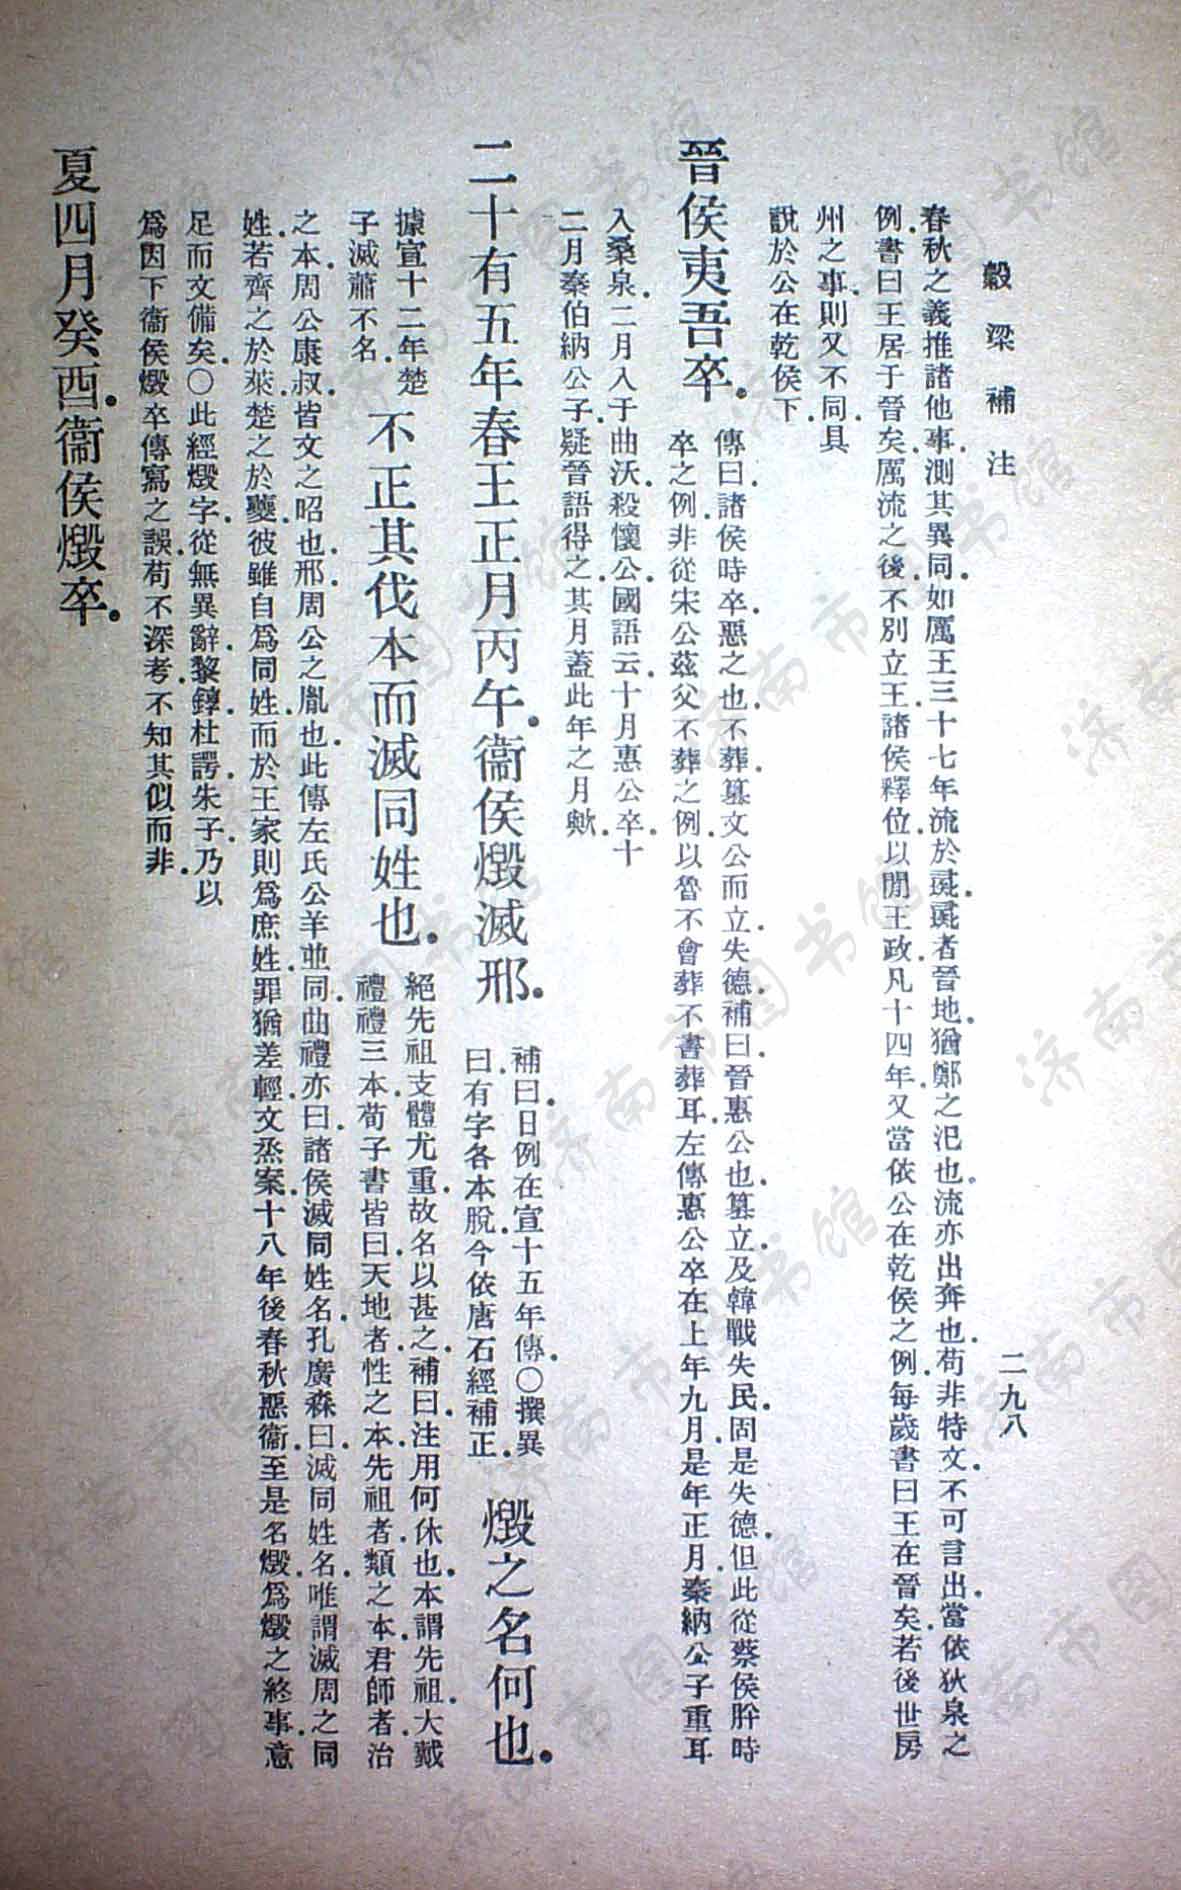 穀梁補注
二九八
春秋之義推諸他事測其異同如厲王三十七年流於彘彘者晉地猶鄭之汜也流亦出奔也苟非特文不可言出當依狄泉之
例書曰王居于晉矣厲流之後不別立王諸侯釋位以閒王政凡十四年又當依公在乾侯之例每歲書曰王在晉矣若後世房
州之事則又不同具
說於公在乾侯下
晉侯夷吾卒
傳曰諸侯時卒惡之也不葬篡文公而立失德補曰晉惠公也篡立及韓戰失民固是失德但此從蔡侯肸時
卒之例非從宋公茲父不葬之例以魯不會葬不書葬耳左傳惠公卒在上年九月是年正月秦納公子重耳
入桑泉二月入于曲沃殺懷公國語云十月惠公卒十
二月秦伯納公子疑晉語得之其月蓋此年之月歟
二十有五年春王正月丙午衞侯燬滅邢
補曰日例在宣十五年傳○撰異
曰有字各本脫今依唐石經補正
燬之名何也
據宣十二年楚
子滅蕭不名
不正其伐本而滅同姓也
絕先祖支體尤重故名以甚之補曰注用何休也本謂先祖大戴
禮禮三本荀子書皆曰天地者性之本先祖者類之本君師者治
之本周公康叔皆文之昭也邢周公之胤也此傳左氏公羊並同曲禮亦曰諸侯滅同姓名孔廣森曰滅同姓名唯謂滅周之同
姓若齊之於萊楚之於夔彼雖自爲同姓而於王家則爲庶姓罪猶差輕文烝案十八年後春秋惡衞至是名燬爲燬之終事意
足而文備矣○此經燬字從無異辭黎錞杜諤朱子乃以
爲因下衞侯燬卒傳寫之誤苟不深考不知其似而非
夏四月癸酉衞侯燬卒